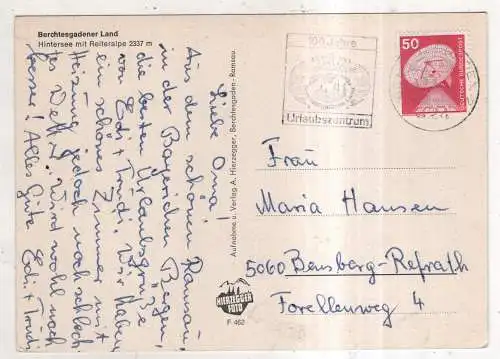 Berchtesgadener Land
Hintersee mit Reiteralpe 2337 m
Liebe Oma!
Aus dem schönen Ramsau,
in den Bayerischen Bergen,
die besten Urlaubsgrüße
von Edi + Trudi. Wir haben
ein schönes Zimmer mit
Heizung jedoch noch schlech-
tes Wetter. Wird wohl noch
besser! Alles Gute Edi + Trudi
Aufnahme u. Verlag A. Hierzegger, Berchtesgaden-Ramsau.
HIERZEGGER
FOTO
F 462
100 Jahre
Urlaubszentrum
50
DEUTSCHE BUNDESPOST
Frau
Maria Hansen
5060 Bensberg-Refrath
Forellenweg 4